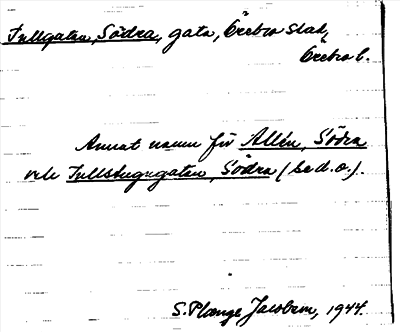 Tullgatan, Södra, gata, Örebro stad,
Örebro l.
Annat namn för Allén, Södra
och Tullstugugatan, Södra (se d.o.).
S. Plænge Jacobson, 1944.